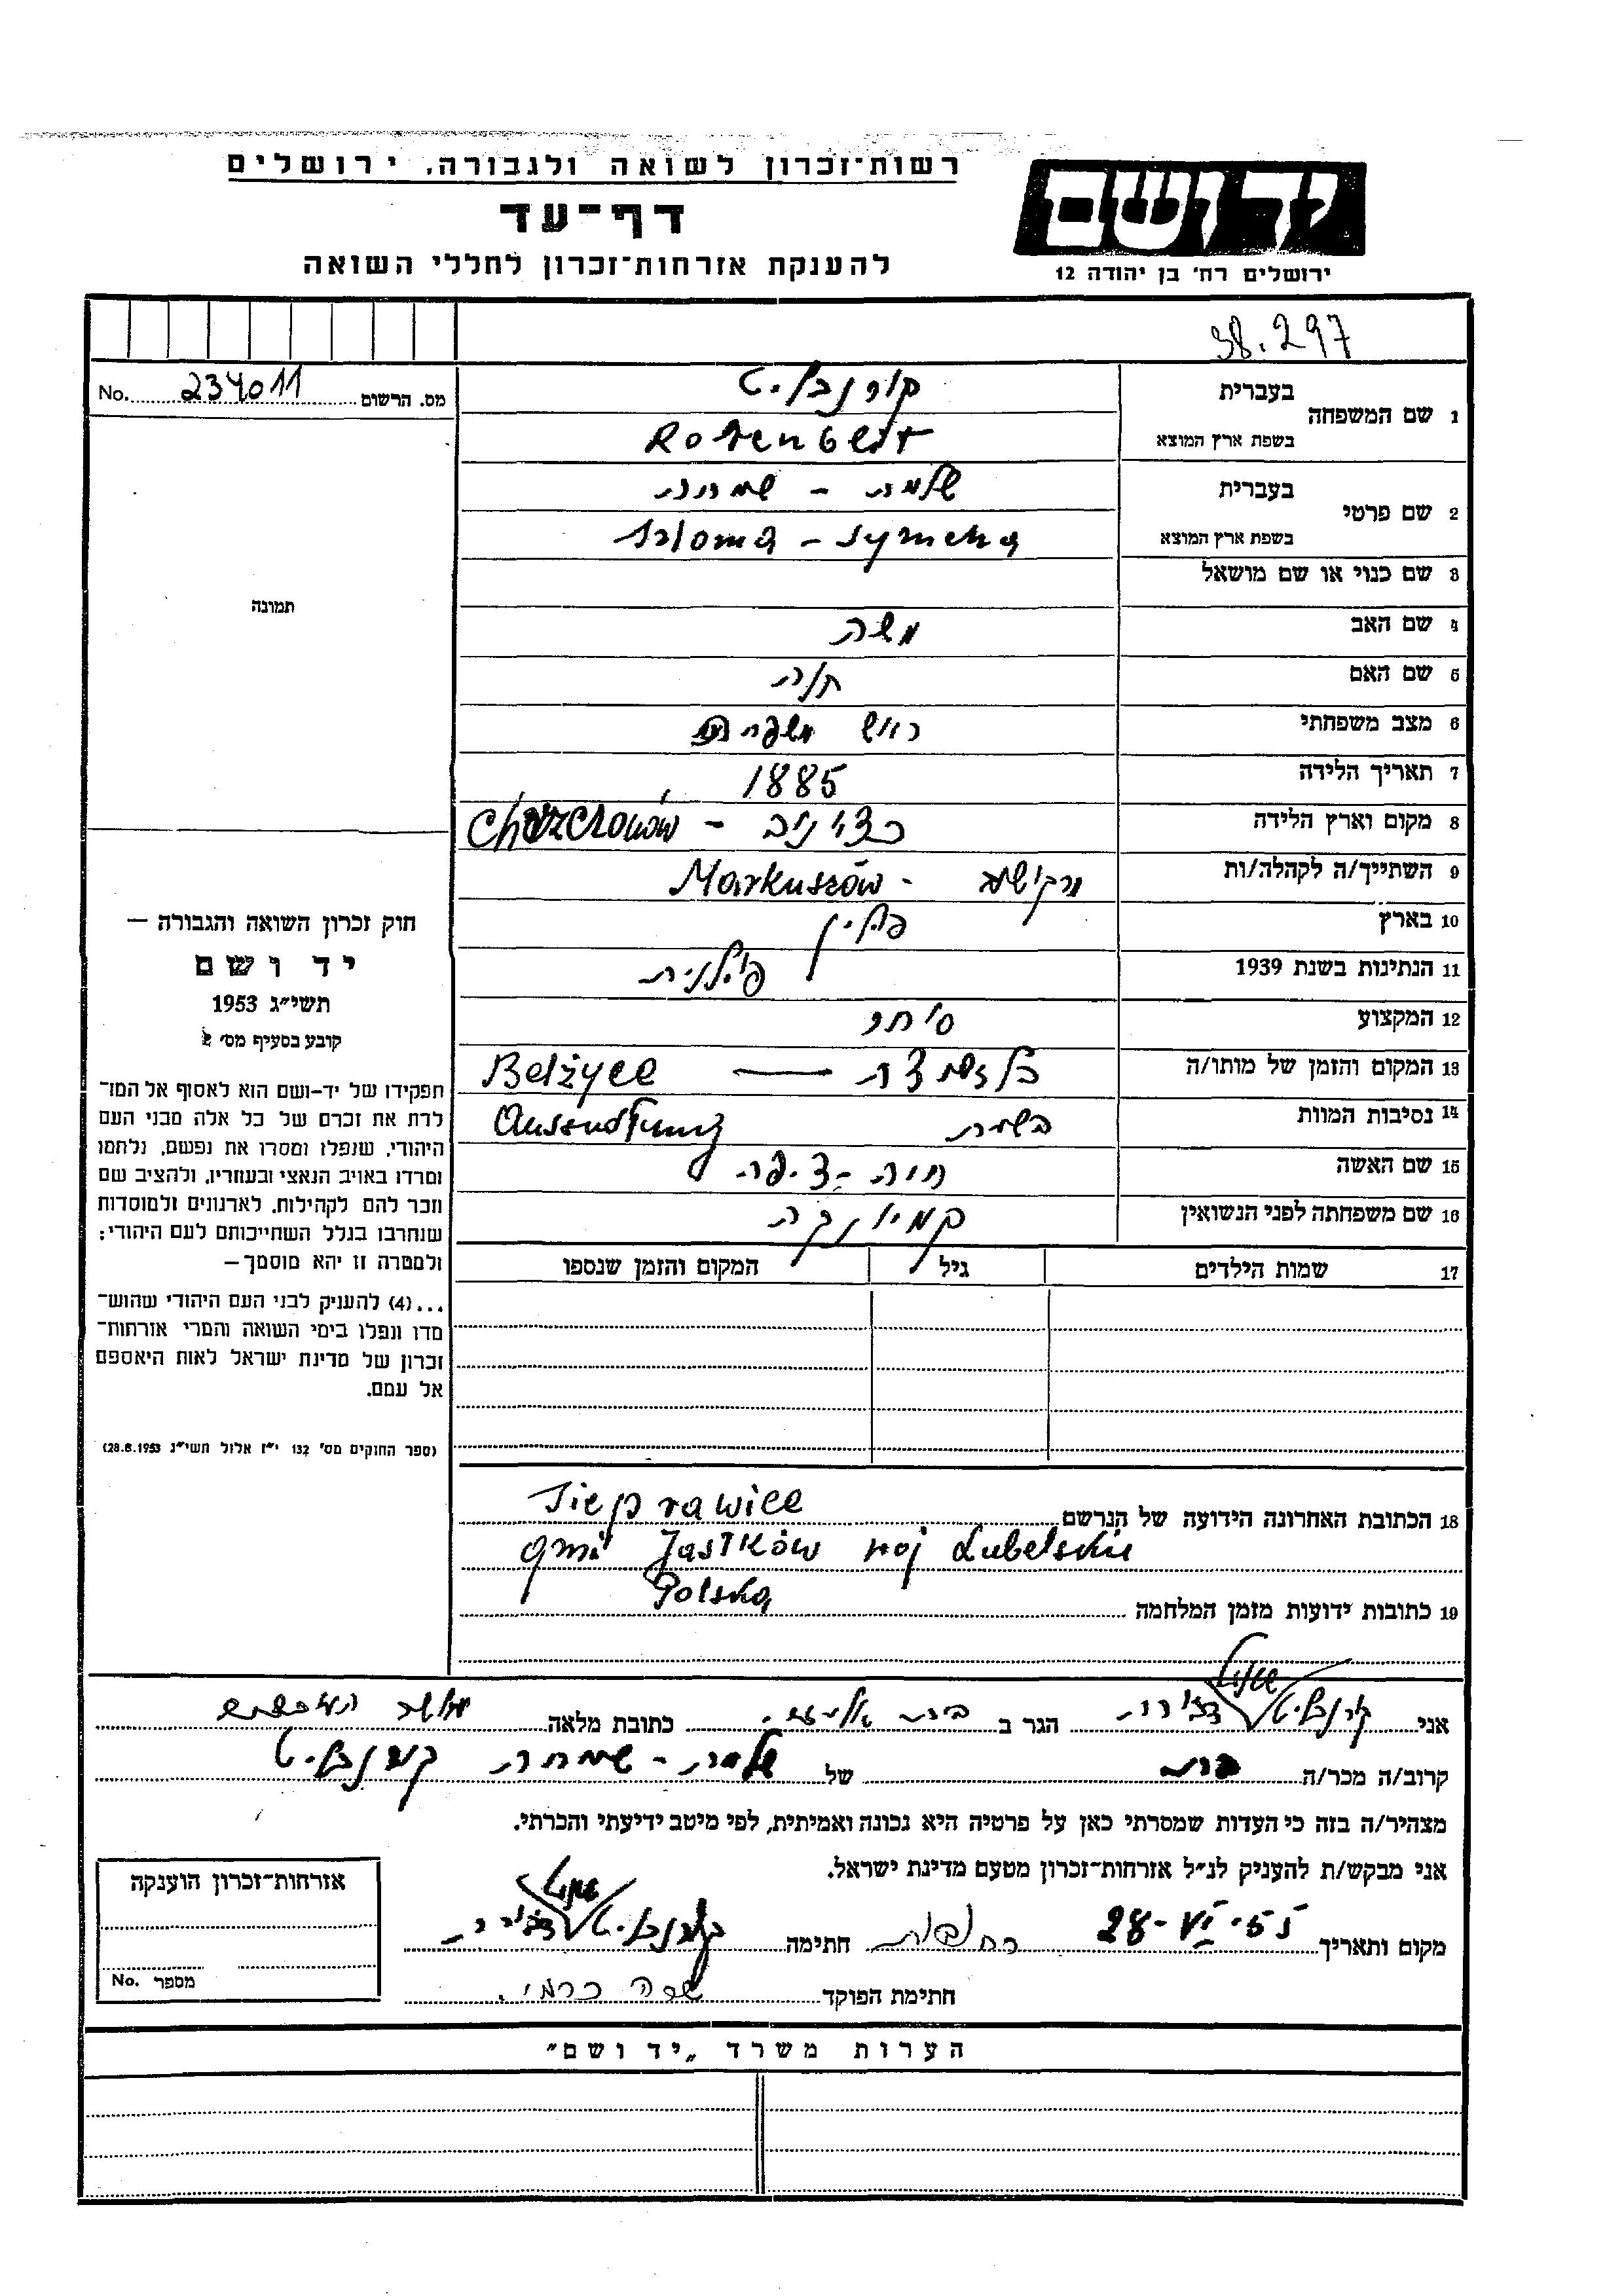 רשות־זכרון לשואה ולגבורה, ירושלים
דף־עד
להענקת אזרחות־זכרון לחללי השואה
יד ושם
ירושלים רח' בן יהודה 12
98.297
No. 234011 מס. הרשום
1 שם המשפחה בעברית
בשפת ארץ המוצא
2 שם פרטי בעברית שלמה - שמחה
בשפת ארץ המוצא Szloma - Symcha
3 שם כנוי או שם מושאל
תמונה
4 שם האב משה
5 שם האם חיה
6 מצב משפחתי ראש משפחה
7 תאריך הלידה 1885
8 מקום וארץ הלידה
9 השתייך/ה לקהלה/ות - Markuszów
10 בארץ פולין
11 הנתינות בשנת 1939 פולנית
12 המקצוע סוחר
13 המקום והזמן של מותו/ה — Bełżyce
14 נסיבות המוות
15 שם האשה חיה - ציפה
16 שם משפחתה לפני הנשואין
17 שמות הילדים גיל המקום והזמן שנספו
חוק זכרון השואה והגבורה —
יד ושם
תשי״ג 1953
קובע בסעיף מס' 2
תפקידו של יד-ושם הוא לאסוף אל המו־
לדת את זכרם של כל אלה מבני העם
היהודי, שנפלו ומסרו את נפשם, נלחמו
ומרדו באויב הנאצי ובעוזריו, ולהציב שם
וזכר להם לקהילות, לארגונים ולמוסדות
שנחרבו בגלל השתייכותם לעם היהודי;
ולמטרה זו יהא מוסמך—
...(4) להעניק לבני העם היהודי שהוש־
מדו ונפלו בימי השואה והמרי אזרחות־
זכרון של מדינת ישראל לאות היאספם
אל עמם.
(ספר החוקים מס' 132 י״ז אלול תשי״ג 28.8.1953)
18 הכתובת האחרונה הידועה של הנרשם
gm. Jastków woj Lubelskie
Polska
19 כתובות ידועות מזמן המלחמה
אני דבורה הגר ב כתובת מלאה
קרוב/ה מכר/ה בת של שלמה - שמחה
מצהיר/ה בזה כי העדות שמסרתי כאן על פרטיה היא נכונה ואמיתית, לפי מיטב ידיעתי והכרתי.
אני מבקש/ת להעניק לנ״ל אזרחות־זכרון מטעם מדינת ישראל.
מקום ותאריך 28-VI-55 רחובות חתימה דבורה
חתימת הפוקד שרה כרמי.
אזרחות־זכרון הוענקה
מספר No.
הערות משרד „יד ושם״